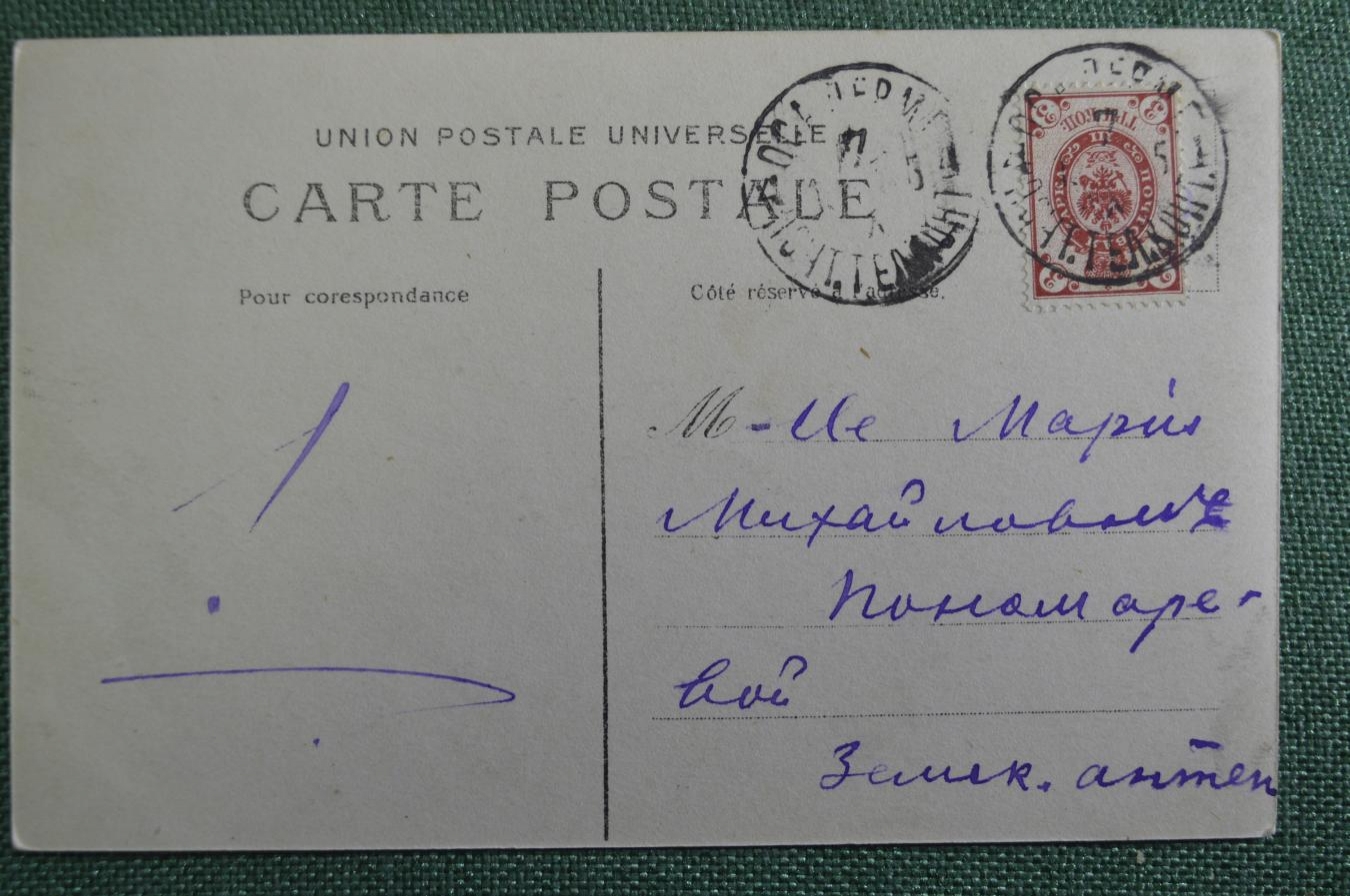 UNION POSTALE UNIVERSELLE
CARTE POSTALE
Pour corespondance
Côté réservé à l'adresse.
М-lle Марiи
Михайловнѣ
Пономаре-
вой
Земск. аптек
!